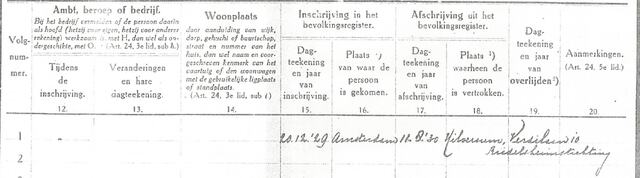 Volg-
nummer.
Ambt, beroep of bedrijf.
Bij het bedrijf vermelden of de persoon daarin
als hoofd (hetzij voor eigen, hetzij voor anderer
rekening) werkzaam is met H, dan wel als on-
dergeschikte, met O. (Art. 24, 3e lid, sub h.)
Tijdens
de
inschrijving.
12.
Veranderingen
en hare
dagteekening.
13.
Woonplaats
door aanduiding van wijk,
dorp, gehucht of buurtschap,
straat en nummer van het
huis, dan wel naam en voor-
geschreven kenmerk van het
vaartuig of den woonwagen
met de gebruikelijke ligplaats
of standplaats.
(Art. 24, 3e lid, sub i)
14.
Inschrijving in het
bevolkingsregister.
Dag-
teekening
en jaar
van
inschrijving.
15.
Plaats
van waar de
persoon
is gekomen.
16.
Afschrijving uit het
bevolkingsregister.
Dag-
teekening
en jaar
van
afschrijving.
17.
Plaats ²)
waarheen de
persoon
is vertrokken.
18.
Dag-
teekening
en jaar
van
overlijden ²).
19.
Aanmerkingen.
(Art. 24, 5e lid.)
20.
1 20.12.'29 Amsterdam 12.8.'30 Hilversum,
2